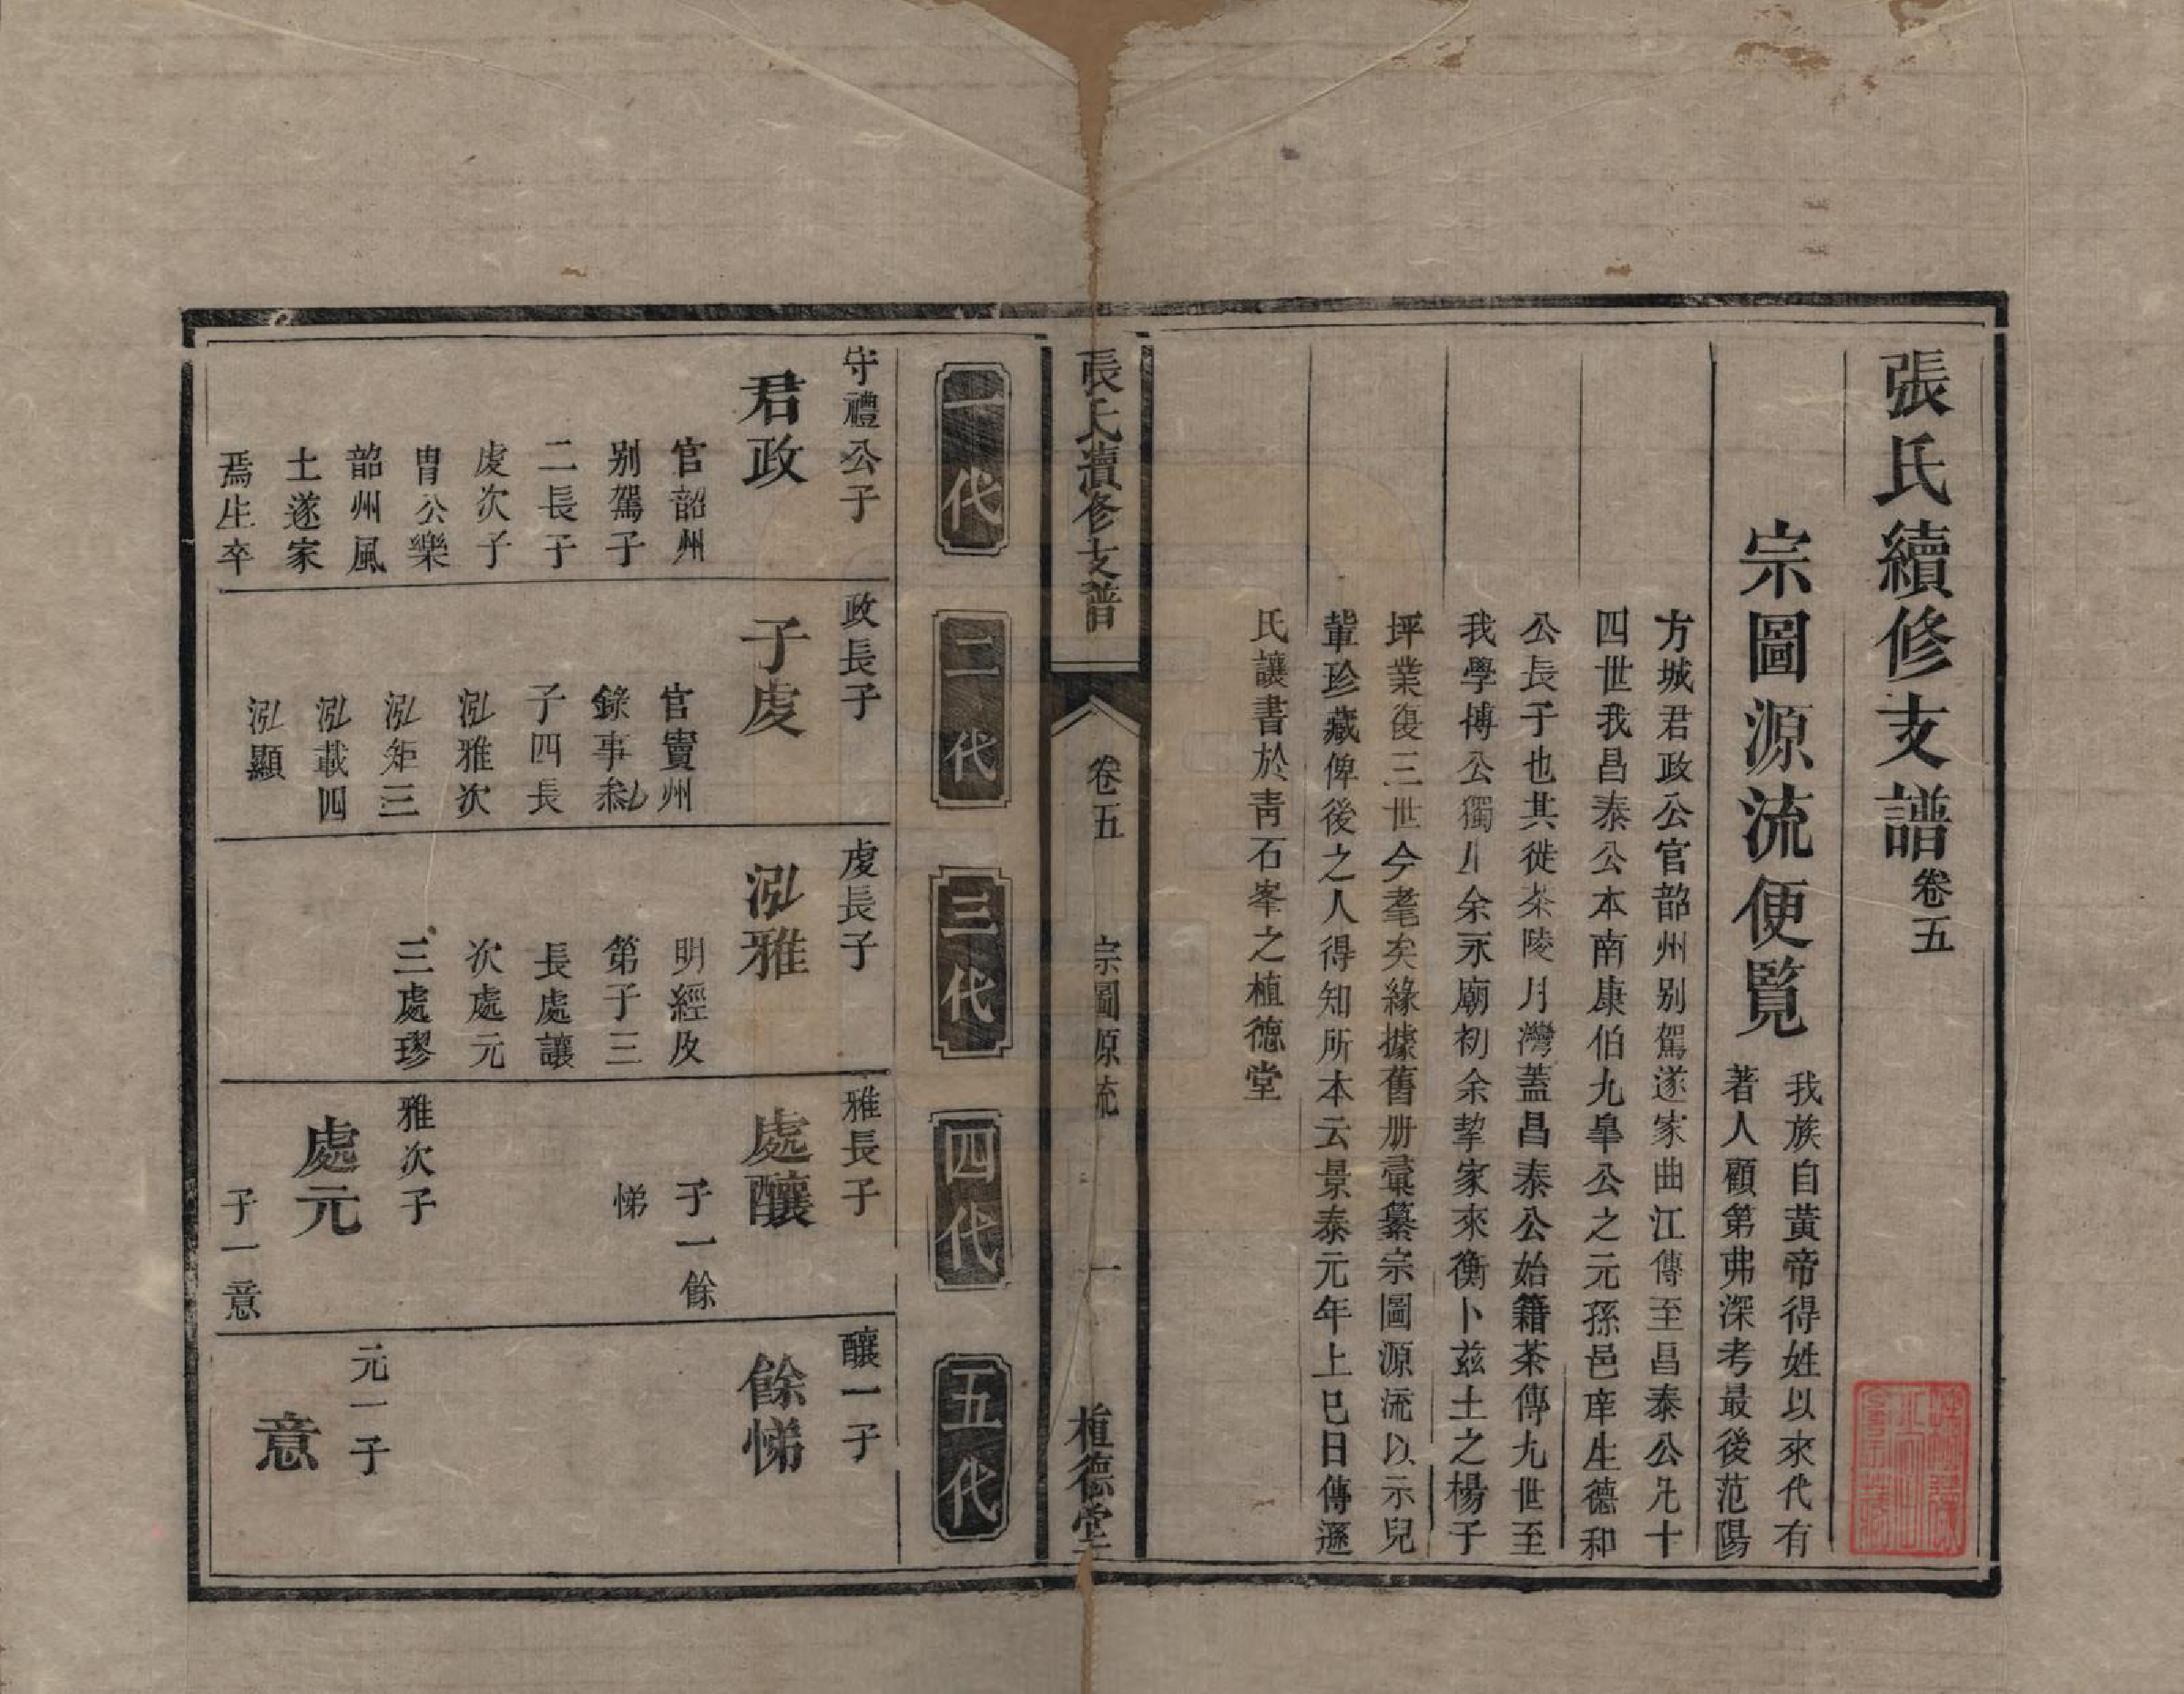 張氏續修支譜卷五
宗圖源流便覽
我族自黃帝得姓以來代有
著人顧第弗深考最後范陽
方城君政公官韶州别駕遂家曲江傳至昌泰公凡十
四世我昌泰公本南康伯九臯公之元孫邑庠生德和
公長子也其徙茶陵月灣蓋昌泰公始籍茶傳九世至
我學博公獨川余永廟初余挈家來衡卜茲土之楊子
坪業復三世今耄矣緣據舊册彚纂宗圖源流以示兒
輩珍藏俾後之人得知所本云景泰元年上巳日傳遜
氏讓書於靑石峯之植德堂
張氏續修支譜
卷五
宗圖源流
一
植德堂
一代
二代
三代
四代
五代
守禮公子
君政
官韶州
别駕子
二長子
虔次子
胄公樂
韶州風
土遂家
焉生卒
政長子
子虔
官竇州
錄事叅
子四長
泓雅次
泓矩三
泓載四
泓顯
虔長子
泓雅
明經及
第子三
長處讓
次處元
三處璆
雅長子
處釀
子一餘
悌
雅次子
處元
子一意
釀一子
餘悌
元一子
意